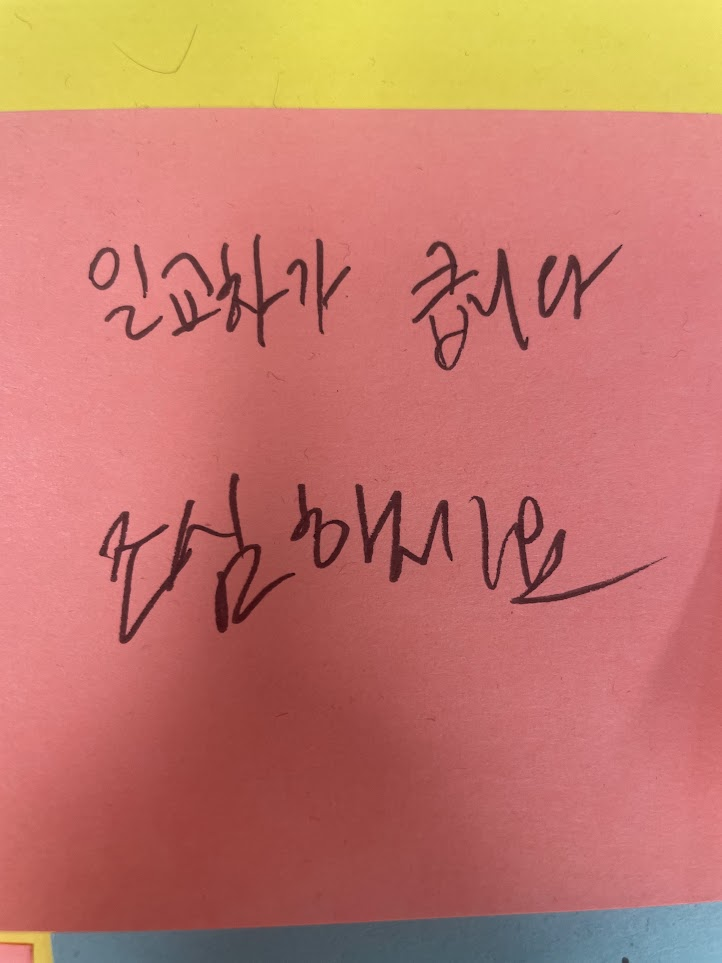 일교차가 큽니다
조심하시요